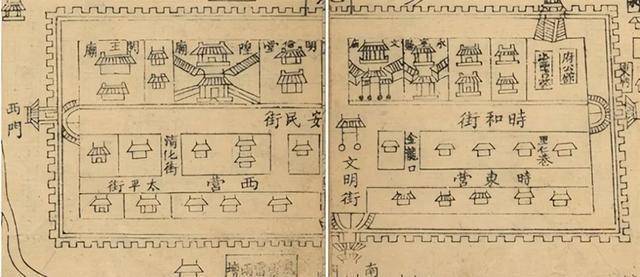 西門
明倫堂
城隍廟
王廟
安民街
清化街
西營
太平街
雲雷雨壇
文廟
府公館
時和街
文明街
里仁巷
時東營
南